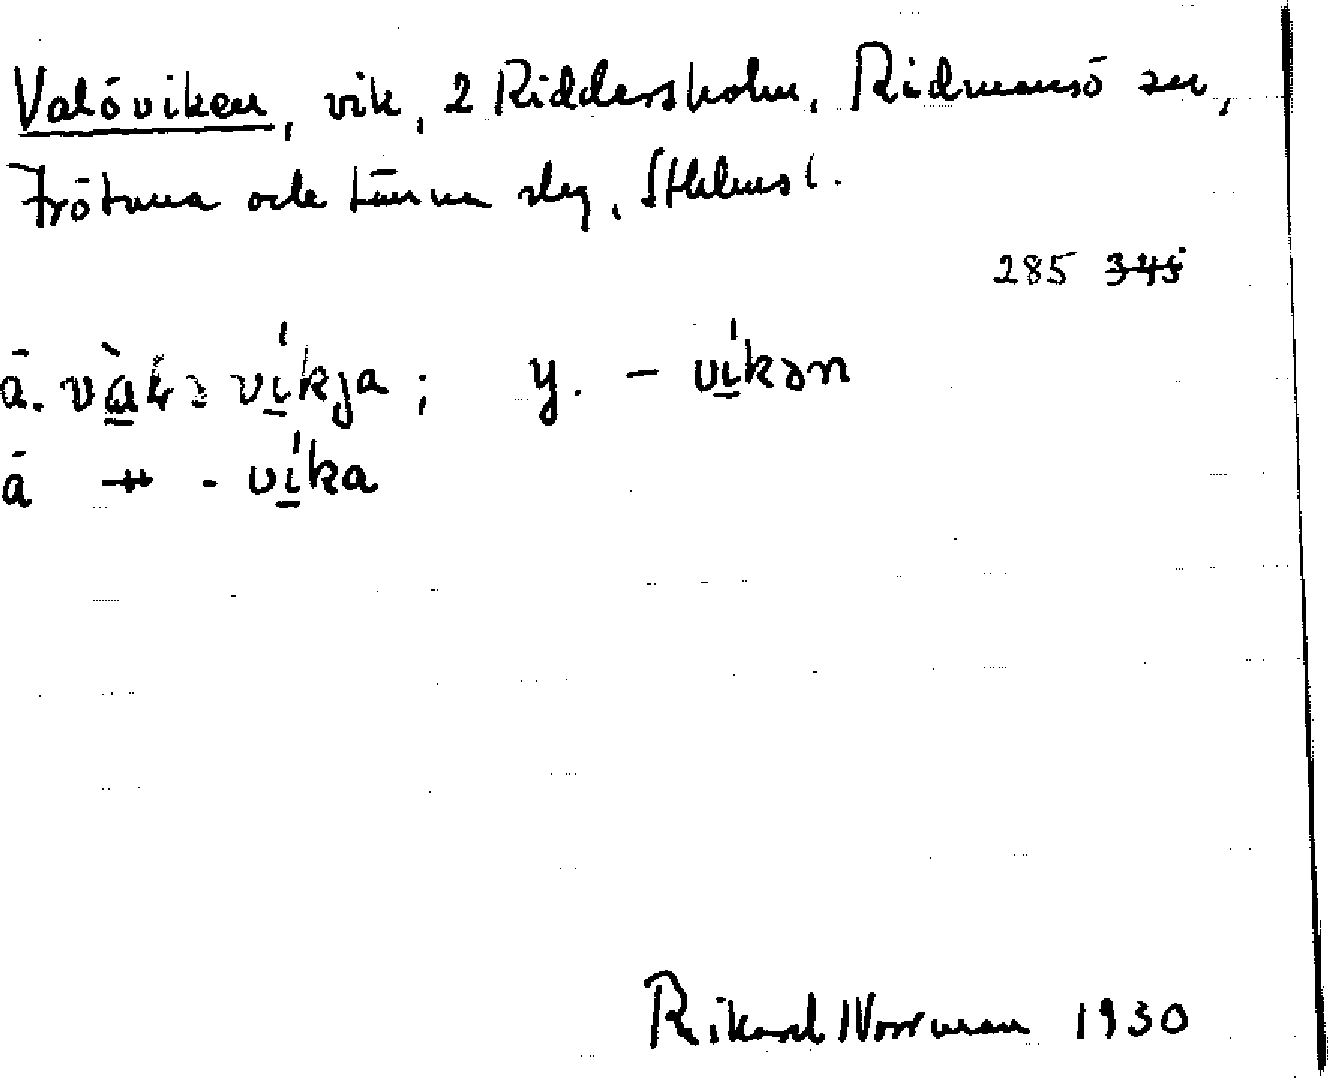 Valöviken, vik, 2 Riddersholm, Rådmansö sn,
Frötuna och Länna slg, Sthlms l.
285 345
ä. vàlə víkja; y. - víkən
ä -"- - víka
Rikard Norrman 1930